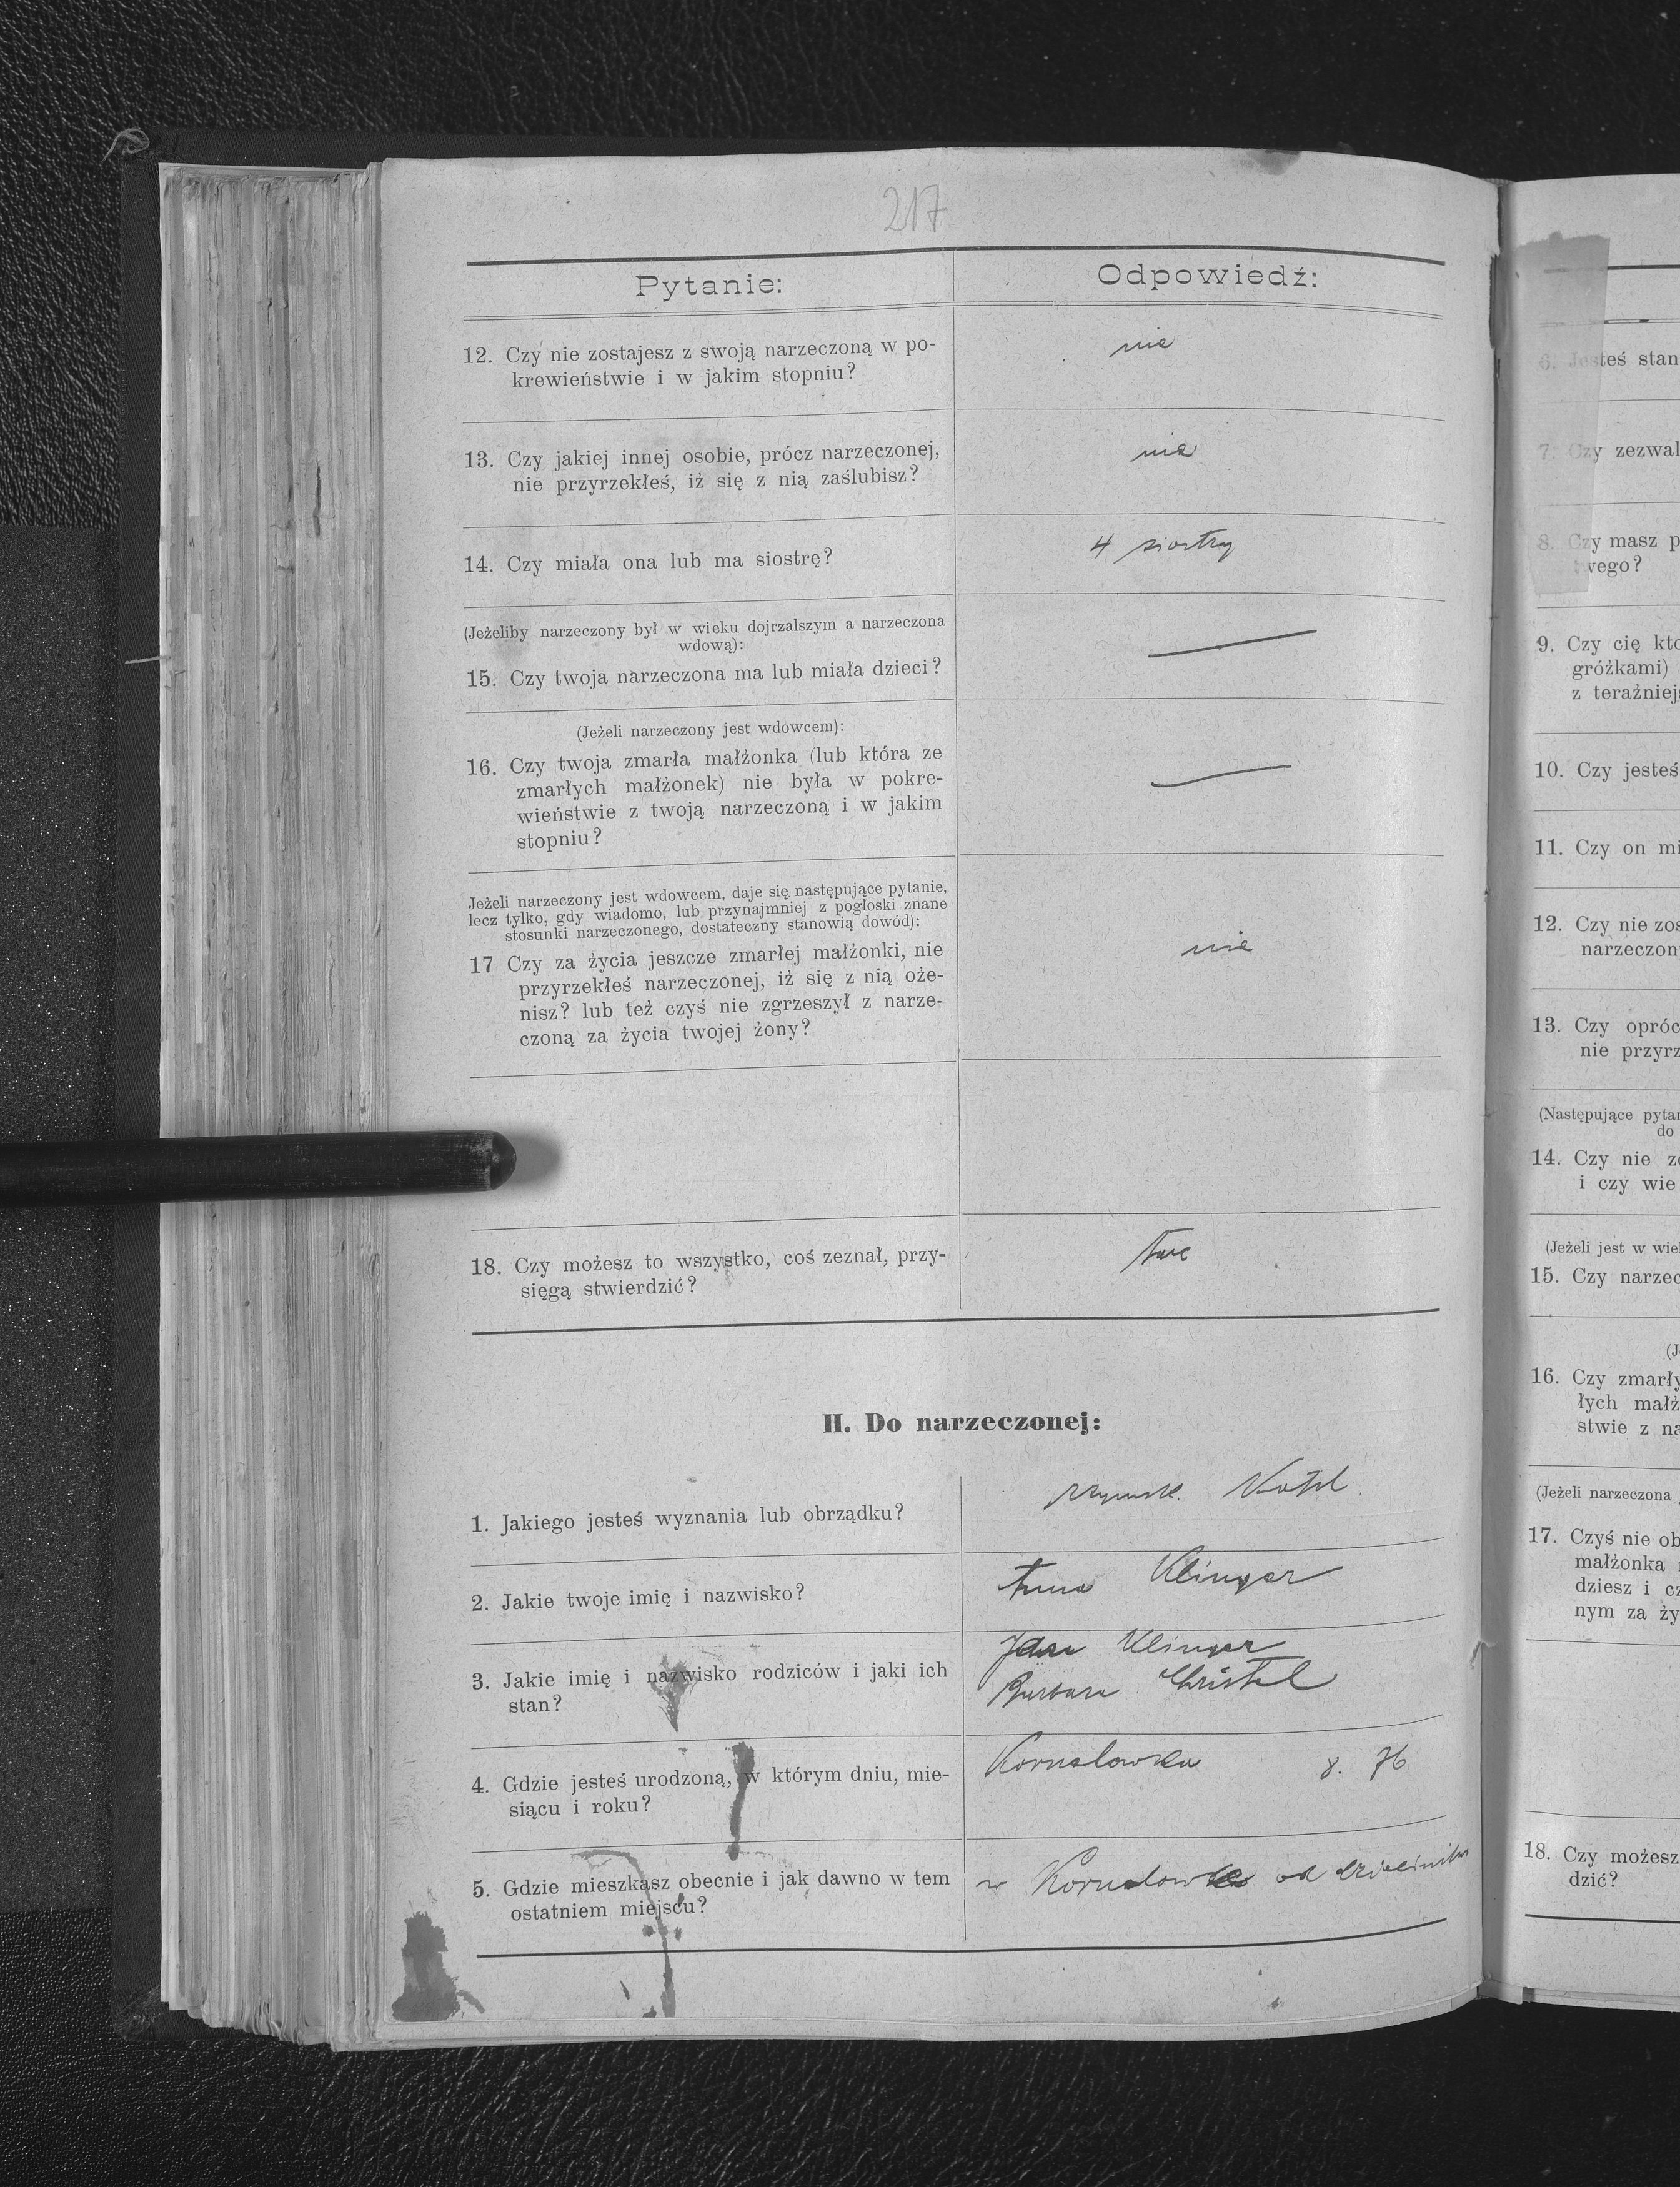 217
Pytanie:
Odpowiedź:
12. Czy nie zostajesz z swoją narzeczoną w po-
krewieństwie i w jakim stopniu?
nie
13. Czy jakiej innej osobie, prócz narzeczonej,
nie przyrzekłeś, iż się z nią zaślubisz?
nie
14. Czy miała ona lub ma siostrę?
4 siostry
(Jeżeliby narzeczony był w wieku dojrzalszym a narzeczona
wdową):
15. Czy twoja narzeczona ma lub miała dzieci?
(Jeżeli narzeczony jest wdowcem):
16. Czy twoja zmarła małżonka (lub która ze
zmarłych małżonek) nie była w pokre-
wieństwie z twoją narzeczoną i w jakim
stopniu?
Jeżeli narzeczony jest wdowcem, daje się następujące pytanie,
lecz tylko, gdy wiadomo, lub przynajmniej z pogłoski znane
stosunki narzeczonego, dostateczny stanowią dowód):
17 Czy za życia jeszcze zmarłej małżonki, nie
przyrzekłeś narzeczonej, iż się z nią oże-
nisz? lub też czyś nie zgrzeszył z narze-
czoną za życia twojej żony?
nie
18. Czy możesz to wszystko, coś zeznał, przy-
sięgą stwierdzić?
II. Do narzeczonej:
1. Jakiego jesteś wyznania lub obrządku?
2. Jakie twoje imię i nazwisko?
Anna Klinger
3. Jakie imię i nazwisko rodziców i jaki ich
stan?
Klinger
Barbara Christel
4. Gdzie jesteś urodzoną, w którym dniu, mie-
siącu i roku?
8. 76
5. Gdzie mieszkasz obecnie i jak dawno w tem
ostatniem miejscu?
w od
6. Jesteś stan
7. Czy zezwal
8. Czy masz p
twego?
9. Czy cię kto
gróżkami)
z teraźniejs
10. Czy jesteś
11. Czy on mi
12. Czy nie zos
narzeczon
13. Czy opróc
nie przyrz
(Następujące pytan
do
14. Czy nie zo
i czy wie
(Jeżeli jest w wiek
15. Czy narzec
(J
16. Czy zmarły
łych małż
stwie z na
(Jeżeli narzeczona
17. Czyś nie ob
małżonka
dziesz i cz
nym za ży
18. Czy możesz
dzić?